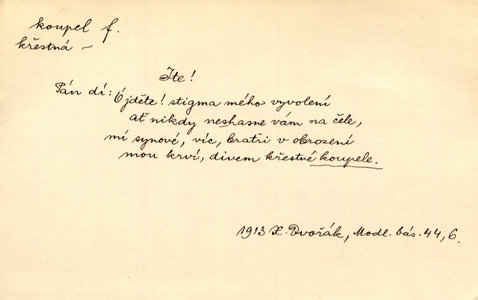 koupel f.
křestná –
Ite!
Pán dí: Ó jděte! stigma mého vyvolení
ať nikdy neshasne vám na čele,
mí synové, víc, bratři v obrození
mou krví, divem křestné koupele.
1913 X. Dvořák, Modl. bás. 44, 6.